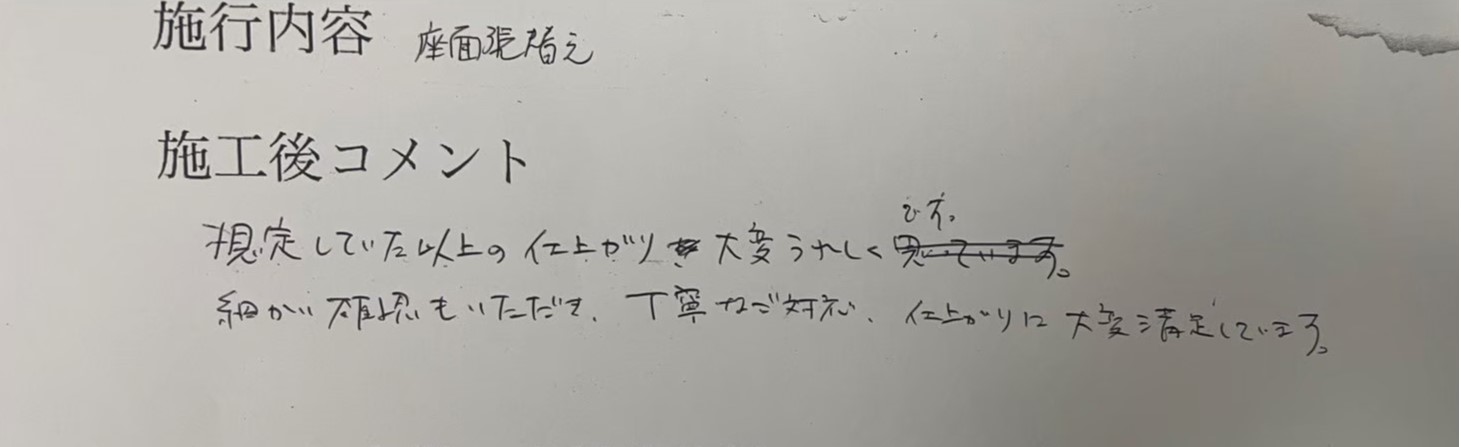 施行内容 座面張替え
施工後コメント
想定していた以上の仕上がりで大変うれしくです。
細かい確認もいただき、丁寧なご対応、仕上がりに大変満足しています。